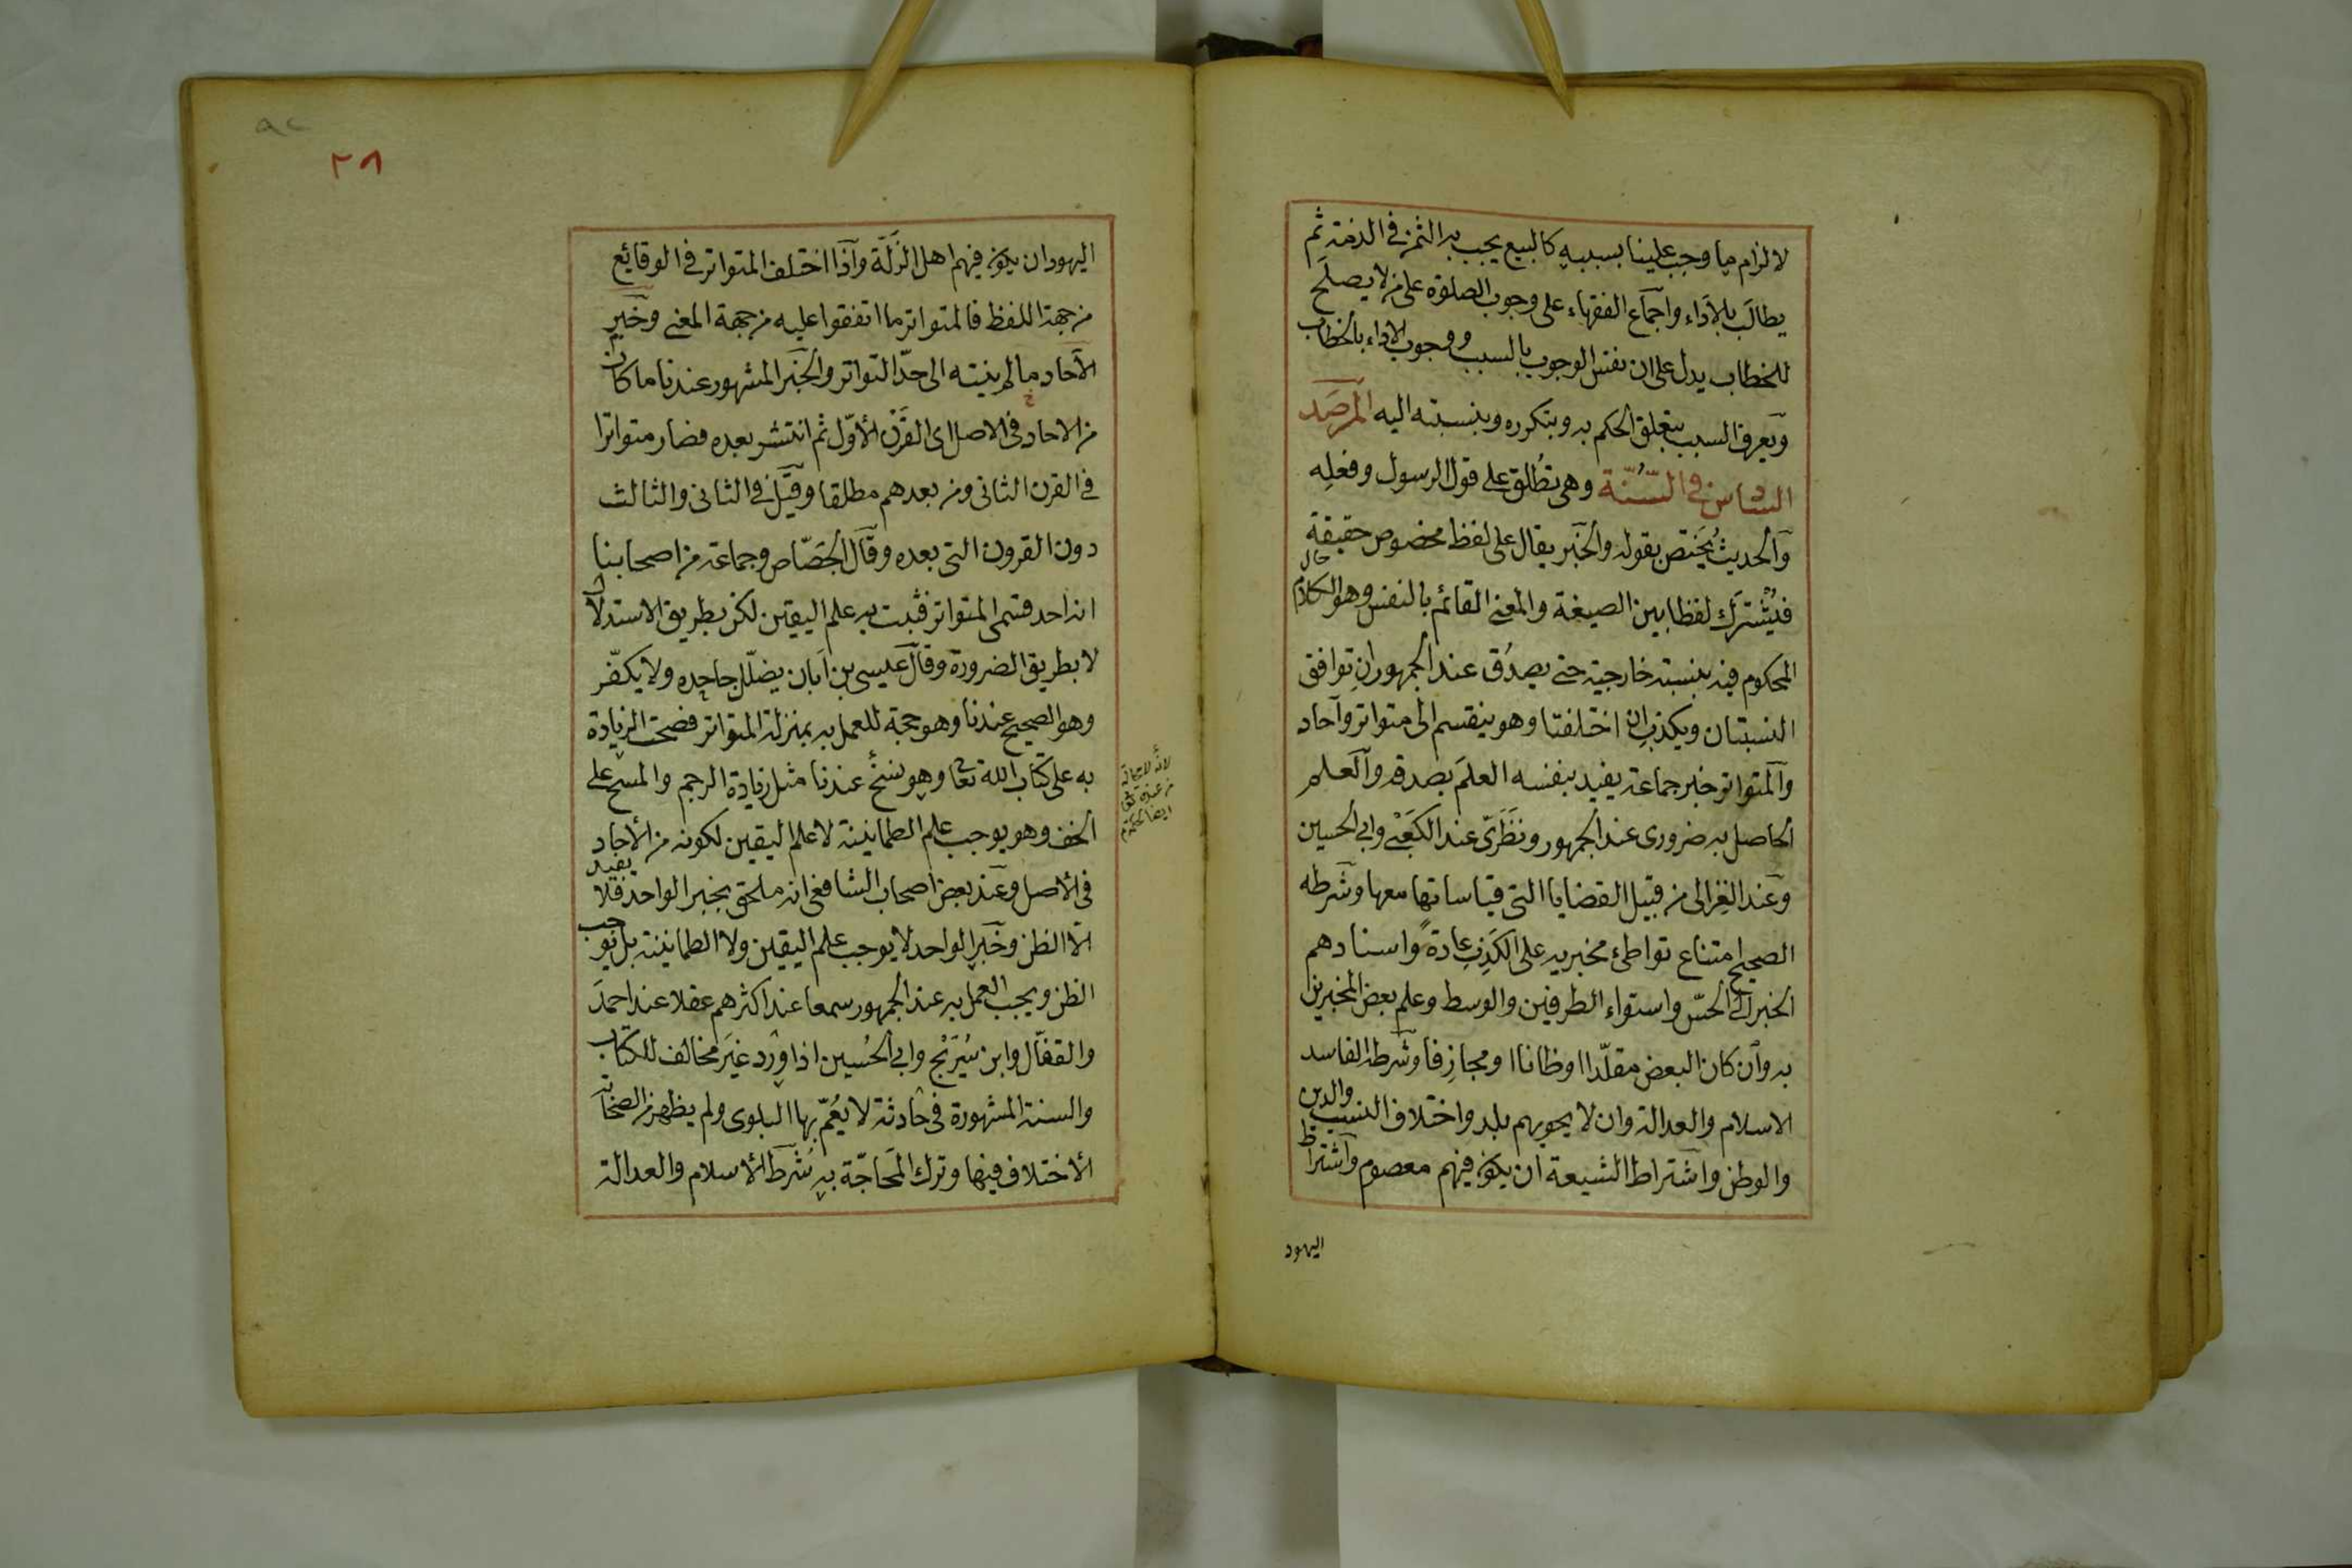 لالزام ما وجب علينا بسببه كالبيع يجب به الثمن في الذمة ثم
يطالب بالأداء واجماع الفقهاء على وجوب الصلوة على من لا يصلح
للخطاب يدل على ان نفس الوجوب بالسبب ووجوب الاداء بالخطاب
ويعرف السبب بتعلق الحكم به وبتكرره وبنسبته اليه المرصد
السادس في السُّنّة وهي تطلق على قول الرسول وفعله
والحديث يختص بقوله والخبر يقال على لفظ مخصوص حقيقة
فيُشترك لفظا بين الصيغة والمعنى القائم بالنفس وهو الكلام
المحكوم فيه بنسبة خارجية حتى يصدُق عند الجمهور ان توافق
النسبتان ويكذب ان اختلفتا وهو ينقسم الى متواتر وآحاد
والمتواتر خبر جماعة يفيد بنفسه العلم بصدقه والعلم
الحاصل به ضرورى عند الجمهور ونظرىّ عند الكعبى وابى الحسين
وعند الغزالى من قبيل القضايا التى قياساتها معها وشرطه
الصحيح امتناع تواطئ مخبريه على الكذب عادةً واسنادهم
الخبر الى الحسّ واستواء الطرفين والوسط وعلم بعض المخبرين
به وان كان البعض مقلّدا اوظانا او مجازفا وشرطه الفاسد
الاسلام والعدالة وان لا يحويهم بلد واختلاف النسب والدين
والوطن واشتراط الشيعة ان يكون فيهم معصوم واشتراط
اليهود
٢٨
اليهود ان يكون فيهم اهل الزلّة واذا اختلف المتواتر في الوقايع
من جهة اللفظ فالمتواتر ما اتفقوا عليه من جهة المعنى وخبر
الآحاد ما لم ينته الى حدّ التواتر والخبر المشهور عندنا ما كان
من الاحاد في الاصل اى القرن الأوّل ثم انتشر بعده فصار متواترا
في القرن الثانى ومن بعدهم مطلقا وقيل في الثانى والثالث
دون القرون التى بعده وقال الجصّاص وجماعة من اصحابنا
انه احد قسمى المتواتر فثبت به علم اليقين لكن بطريق الاستدلال
لا بطريق الضرورة وقال عيسى بن أبان يضلّل جاحده ولا يكفّر
وهو الصحيح عندنا وهو حجة للعمل به بمنزلة المتواتر فصحت الزيادة
به على كتاب الله تعا وهو نسخ عندنا مثل زيادة الرجم والمسح على
الخف وهو يوجب علم الطمانينة لا علم اليقين لكونه من الأحاد
في الأصل وعند بعض اصحاب الشافعى انه ملحق بخبر الواحد فلا يفيد
الّا الظن وخبر الواحد لا يوجب علم اليقين ولا الطمانينة بل يوجب
الظن ويجب العمل به عند الجمهور سمعا عند اكثرهم عقلا عند احمد
والقفّال وابن سُرَيْج وابى الحُسين اذا ورد غير مخالف للكتاب
والسنة المشهورة في حادثة لا يعُمّ بها البلوى ولم يظهر من الصحابة
الأختلاف فيها وترك المحاجّة به شرط الأسلام والعدالة